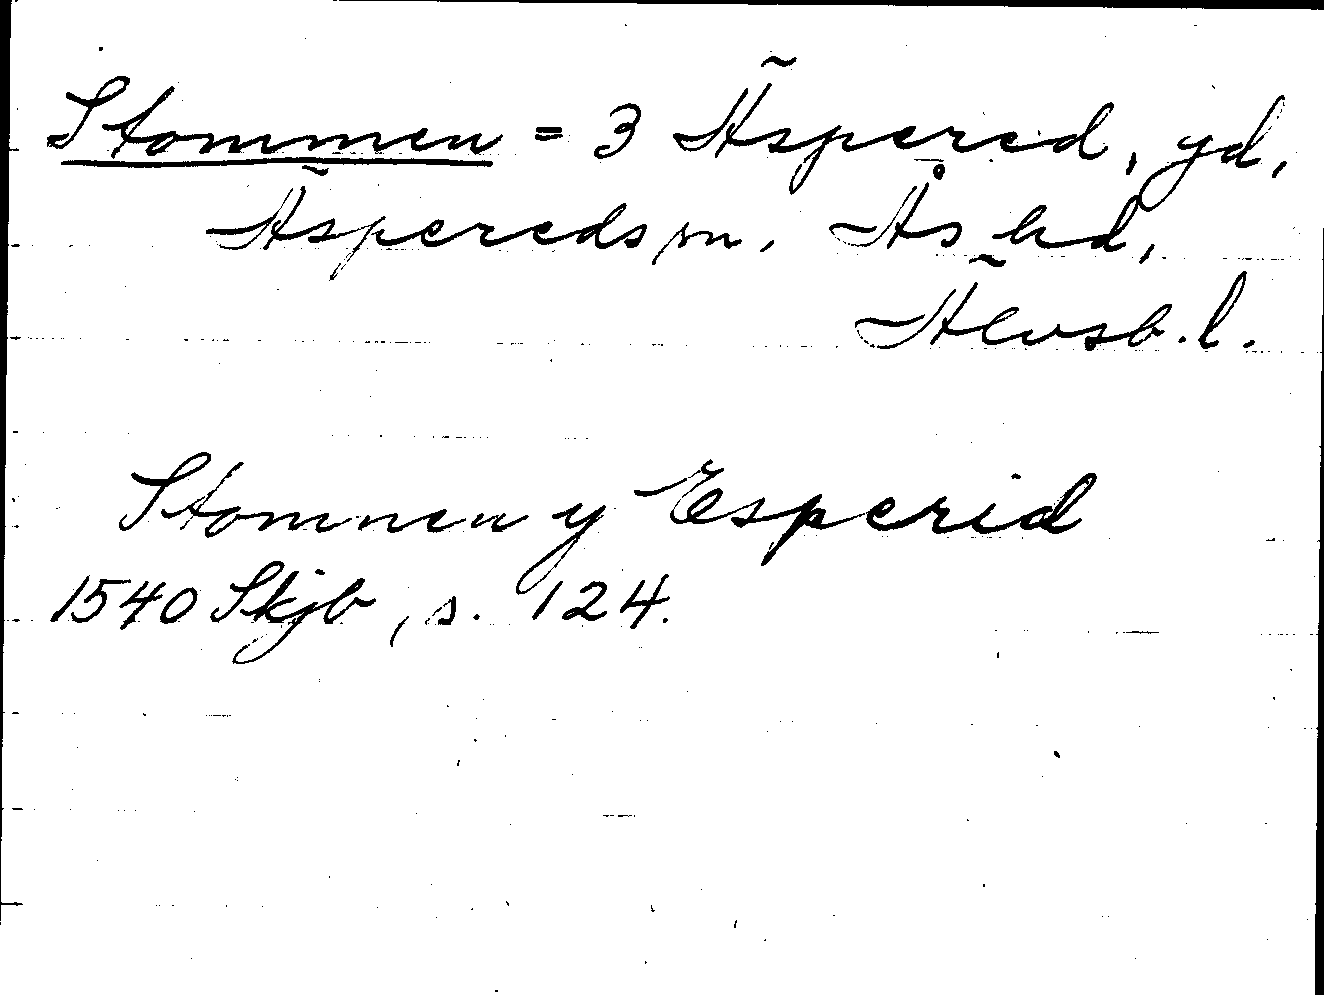 Stommen = 3 Äspered, gd,
Äspereds sn. Ås hd,
Älvsb. l.
Stommen y Esperid
1540 Skjb, s. 124.